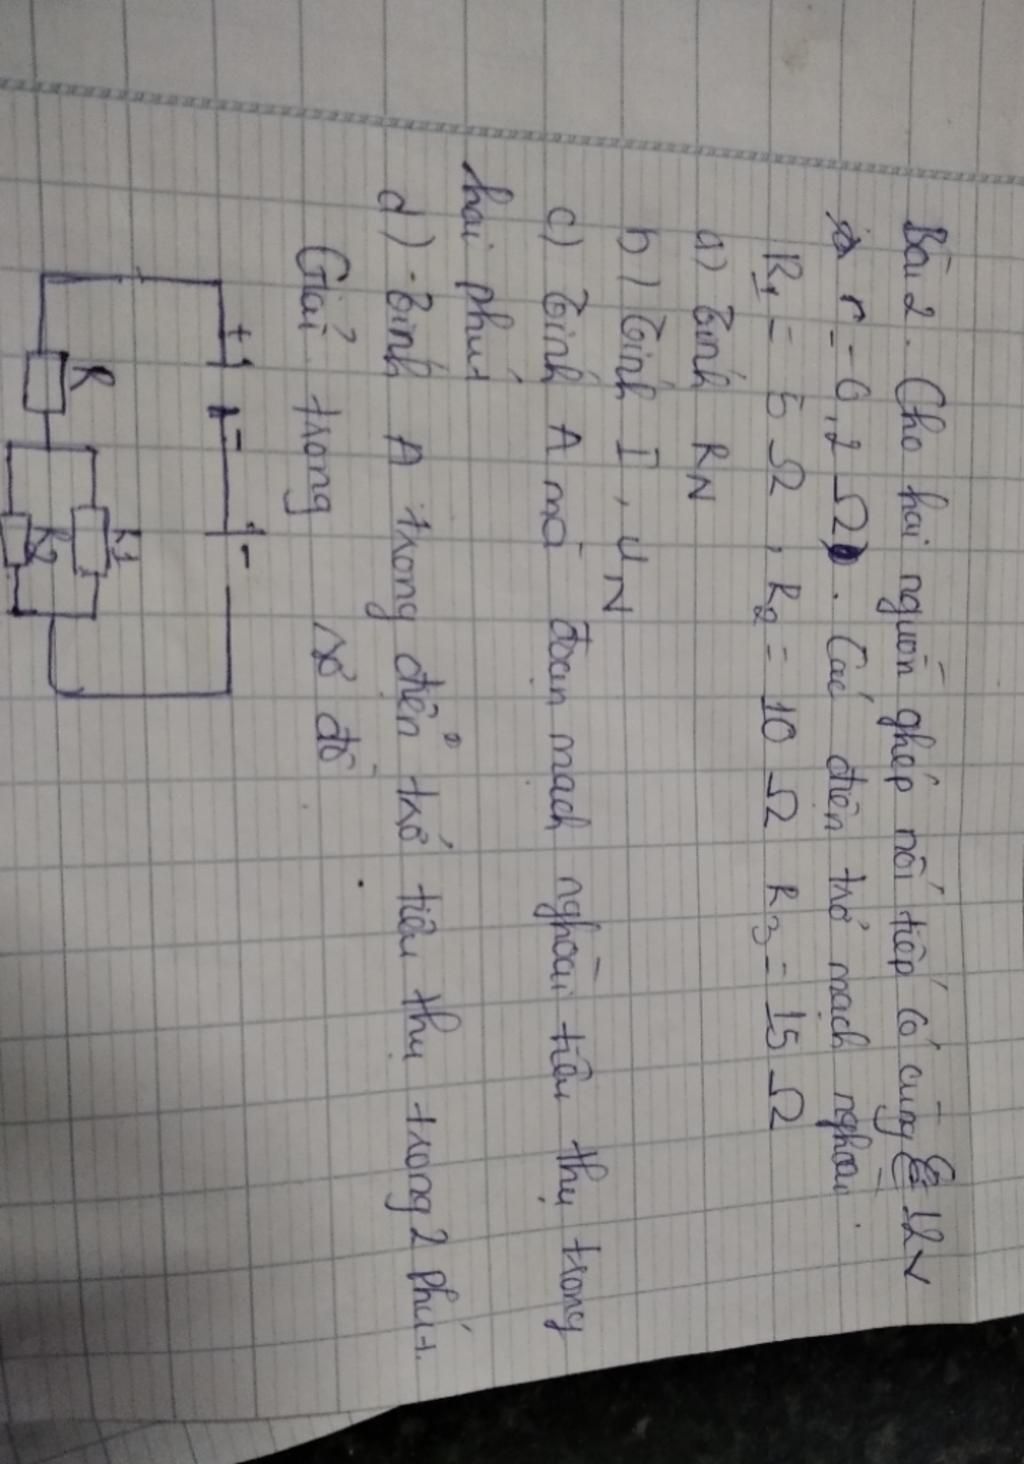 Bài 2. Cho hai nguồn ghép nối tiếp có cùng E = 12V
r = 0,2 Ω. Các điện trở mạch nghoài.
R1 = 5 Ω, R2 = 10 Ω R3 = 15 Ω
a) Tính RN
b) Tính I, UN
c) Tính A mà đoạn mạch nghoài tiêu thụ trong
hai phút
d) Tính A trong điển trở tiêu thụ trong 2 phút.
Giải trong sơ đồ
+ - + -
R R1
R2